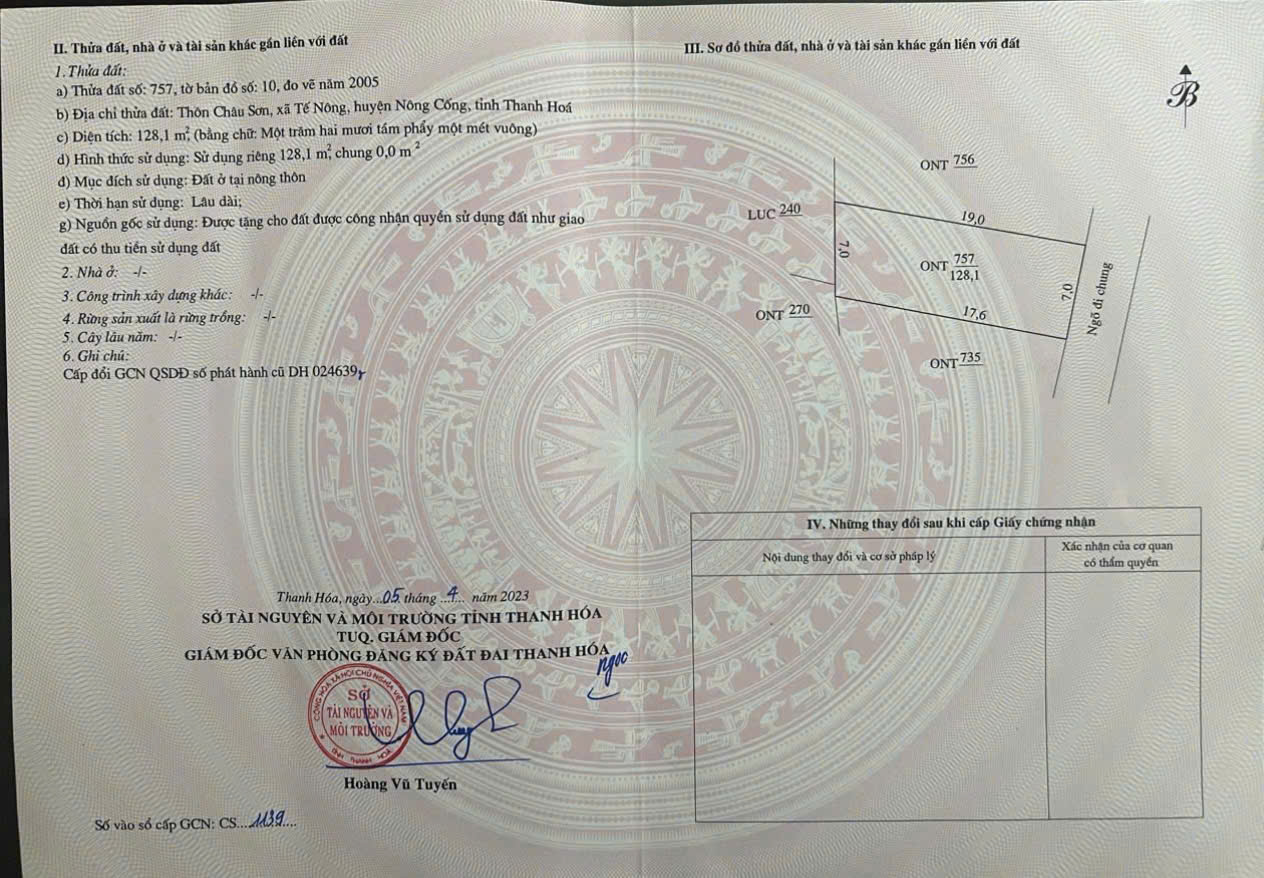 II. Thửa đất, nhà ở và tài sản khác gắn liền với đất
1. Thửa đất:
a) Thửa đất số: 757, tờ bản đồ số: 10, đo vẽ năm 2005
b) Địa chỉ thửa đất: Thôn Châu Sơn, xã Tế Nông, huyện Nông Cống, tỉnh Thanh Hoá
c) Diện tích: 128,1 m², (bằng chữ: Một trăm hai mươi tám phẩy một mét vuông)
d) Hình thức sử dụng: Sử dụng riêng 128,1 m², chung 0,0 m ²
đ) Mục đích sử dụng: Đất ở tại nông thôn
e) Thời hạn sử dụng: Lâu dài;
g) Nguồn gốc sử dụng: Được tặng cho đất được công nhận quyền sử dụng đất như giao
đất có thu tiền sử dụng đất
2. Nhà ở: -/-
3. Công trình xây dựng khác: -/-
4. Rừng sản xuất là rừng trồng: -/-
5. Cây lâu năm: -/-
6. Ghi chú:
Cấp đổi GCN QSDĐ số phát hành cũ DH 024639
Thanh Hóa, ngày...05 tháng ...4... năm 2023
SỞ TÀI NGUYÊN VÀ MÔI TRƯỜNG TỈNH THANH HÓA
TUQ. GIÁM ĐỐC
GIÁM ĐỐC VĂN PHÒNG ĐĂNG KÝ ĐẤT ĐAI THANH HÓA
ngọc
CỘNG HÒA XÃ HỘI CHỦ NGHĨA VIỆT NAM
SỞ
TÀI NGUYÊN VÀ
MÔI TRƯỜNG
TỈNH THANH HOÁ
Hoàng Vũ Tuyến
Số vào sổ cấp GCN: CS....1139....
III. Sơ đồ thửa đất, nhà ở và tài sản khác gắn liền với đất
B
ONT 756
LUC 240
19,0
7,0
ONT 757
128,1
7,0
Ngõ đi chung
ONT 270
17,6
ONT 735
IV. Những thay đổi sau khi cấp Giấy chứng nhận
Nội dung thay đổi và cơ sở pháp lý
Xác nhận của cơ quan
có thẩm quyền